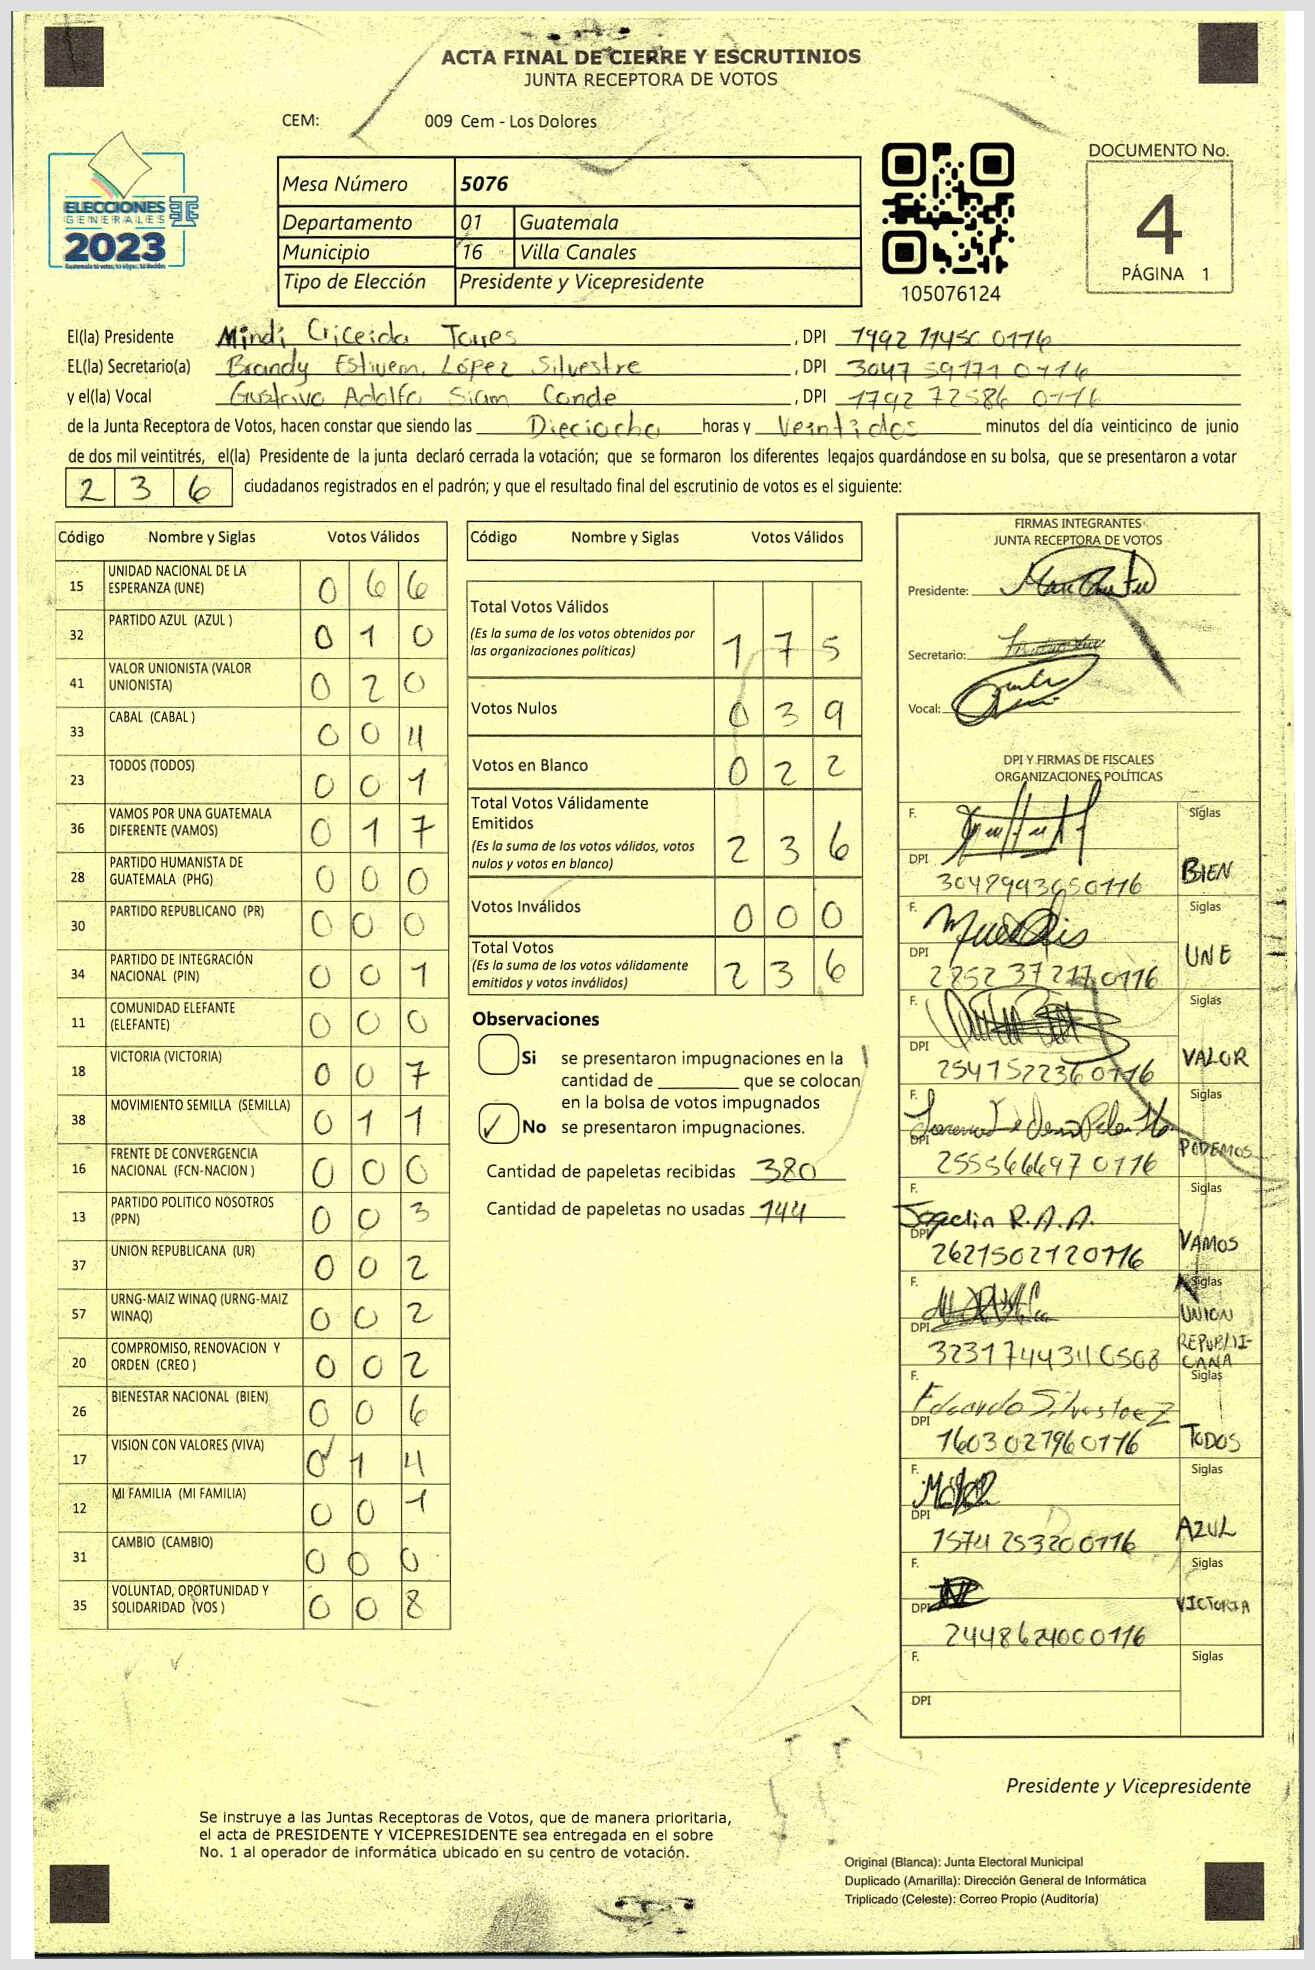 ACTA FINAL DE CIERRE Y ESCRUTINIOS
JUNTA RECEPTORA DE VOTOS
CEM: 009 Cem - Los Dolores
ELECCIONES
GENERALES
2023
Mesa Número 5076
Departamento 01 Guatemala
Municipio 16 Villa Canales
Tipo de Elección Presidente y Vicepresidente
105076124
DOCUMENTO No.
4
PÁGINA 1
El(la) Presidente Mindi Criceida Torres, DPI 1992 71450 0116
EL(la) Secretario(a) Brandy Estivem López Silvestre, DPI 3047 59171 0116
y el(la) Vocal Gustavo Adolfo Siam Conde, DPI 1792 72586 0116
de la Junta Receptora de Votos, hacen constar que siendo las Dieciocho horas y Veintidos minutos del día veinticinco de junio
de dos mil veintitrés, el(la) Presidente de la junta declaró cerrada la votación; que se formaron los diferentes legajos guardándose en su bolsa, que se presentaron a votar
2 3 6 ciudadanos registrados en el padrón; y que el resultado final del escrutinio de votos es el siguiente:
Código Nombre y Siglas Votos Válidos
15 UNIDAD NACIONAL DE LA ESPERANZA (UNE) 0 6 6
32 PARTIDO AZUL (AZUL ) 0 1 0
41 VALOR UNIONISTA (VALOR UNIONISTA) 0 2 0
33 CABAL (CABAL ) 0 0 4
23 TODOS (TODOS) 0 0 1
36 VAMOS POR UNA GUATEMALA DIFERENTE (VAMOS) 0 1 7
28 PARTIDO HUMANISTA DE GUATEMALA (PHG) 0 0 0
30 PARTIDO REPUBLICANO (PR) 0 0 0
34 PARTIDO DE INTEGRACIÓN NACIONAL (PIN) 0 0 1
11 COMUNIDAD ELEFANTE (ELEFANTE) 0 0 0
18 VICTORIA (VICTORIA) 0 0 7
38 MOVIMIENTO SEMILLA (SEMILLA) 0 1 1
16 FRENTE DE CONVERGENCIA NACIONAL (FCN-NACION ) 0 0 0
13 PARTIDO POLITICO NOSOTROS (PPN) 0 0 3
37 UNION REPUBLICANA (UR) 0 0 2
57 URNG-MAIZ WINAQ (URNG-MAIZ WINAQ) 0 0 2
20 COMPROMISO, RENOVACION Y ORDEN (CREO ) 0 0 2
26 BIENESTAR NACIONAL (BIEN) 0 0 6
17 VISION CON VALORES (VIVA) 0 1 4
12 MI FAMILIA (MI FAMILIA) 0 0 1
31 CAMBIO (CAMBIO) 0 0 0
35 VOLUNTAD, OPORTUNIDAD Y SOLIDARIDAD (VOS ) 0 0 8
Código Nombre y Siglas Votos Válidos
Total Votos Válidos 1 7 5
(Es la suma de los votos obtenidos por
las organizaciones políticas)
Votos Nulos 0 3 9
Votos en Blanco 0 2 2
Total Votos Válidamente
Emitidos 2 3 6
(Es la suma de los votos válidos, votos
nulos y votos en blanco)
Votos Inválidos 0 0 0
Total Votos 2 3 6
(Es la suma de los votos válidamente
emitidos y votos inválidos)
Observaciones
Si se presentaron impugnaciones en la
cantidad de ________ que se colocan
en la bolsa de votos impugnados
✓ No se presentaron impugnaciones.
Cantidad de papeletas recibidas 380
Cantidad de papeletas no usadas 144
FIRMAS INTEGRANTES
JUNTA RECEPTORA DE VOTOS
Presidente:
Secretario:
Vocal:
DPI Y FIRMAS DE FISCALES
ORGANIZACIONES POLÍTICAS
F. Siglas
DPI 3048993050116 BIEN
F. Siglas
DPI 2252 37217 0116 UNE
F. Siglas
DPI 2547522360116 VALOR
F. Siglas
DPI 255566697 0116 PODEMOS
F. Joselin R.A.A. Siglas
DPI 2621502120116 VAMOS
F. Siglas
DPI 3231744340508 UNION REPUBLICANA
F. Eduardo Silvestre Z Siglas
DPI 1603027960116 TODOS
F. Siglas
DPI 1574 253200116 AZUL
F. Siglas
DPI 2448624000116 VICTORIA
F. Siglas
DPI
Presidente y Vicepresidente
Se instruye a las Juntas Receptoras de Votos, que de manera prioritaria,
el acta de PRESIDENTE Y VICEPRESIDENTE sea entregada en el sobre
No. 1 al operador de informática ubicado en su centro de votación.
Original (Blanca): Junta Electoral Municipal
Duplicado (Amarilla): Dirección General de Informática
Triplicado (Celeste): Correo Propio (Auditoría)